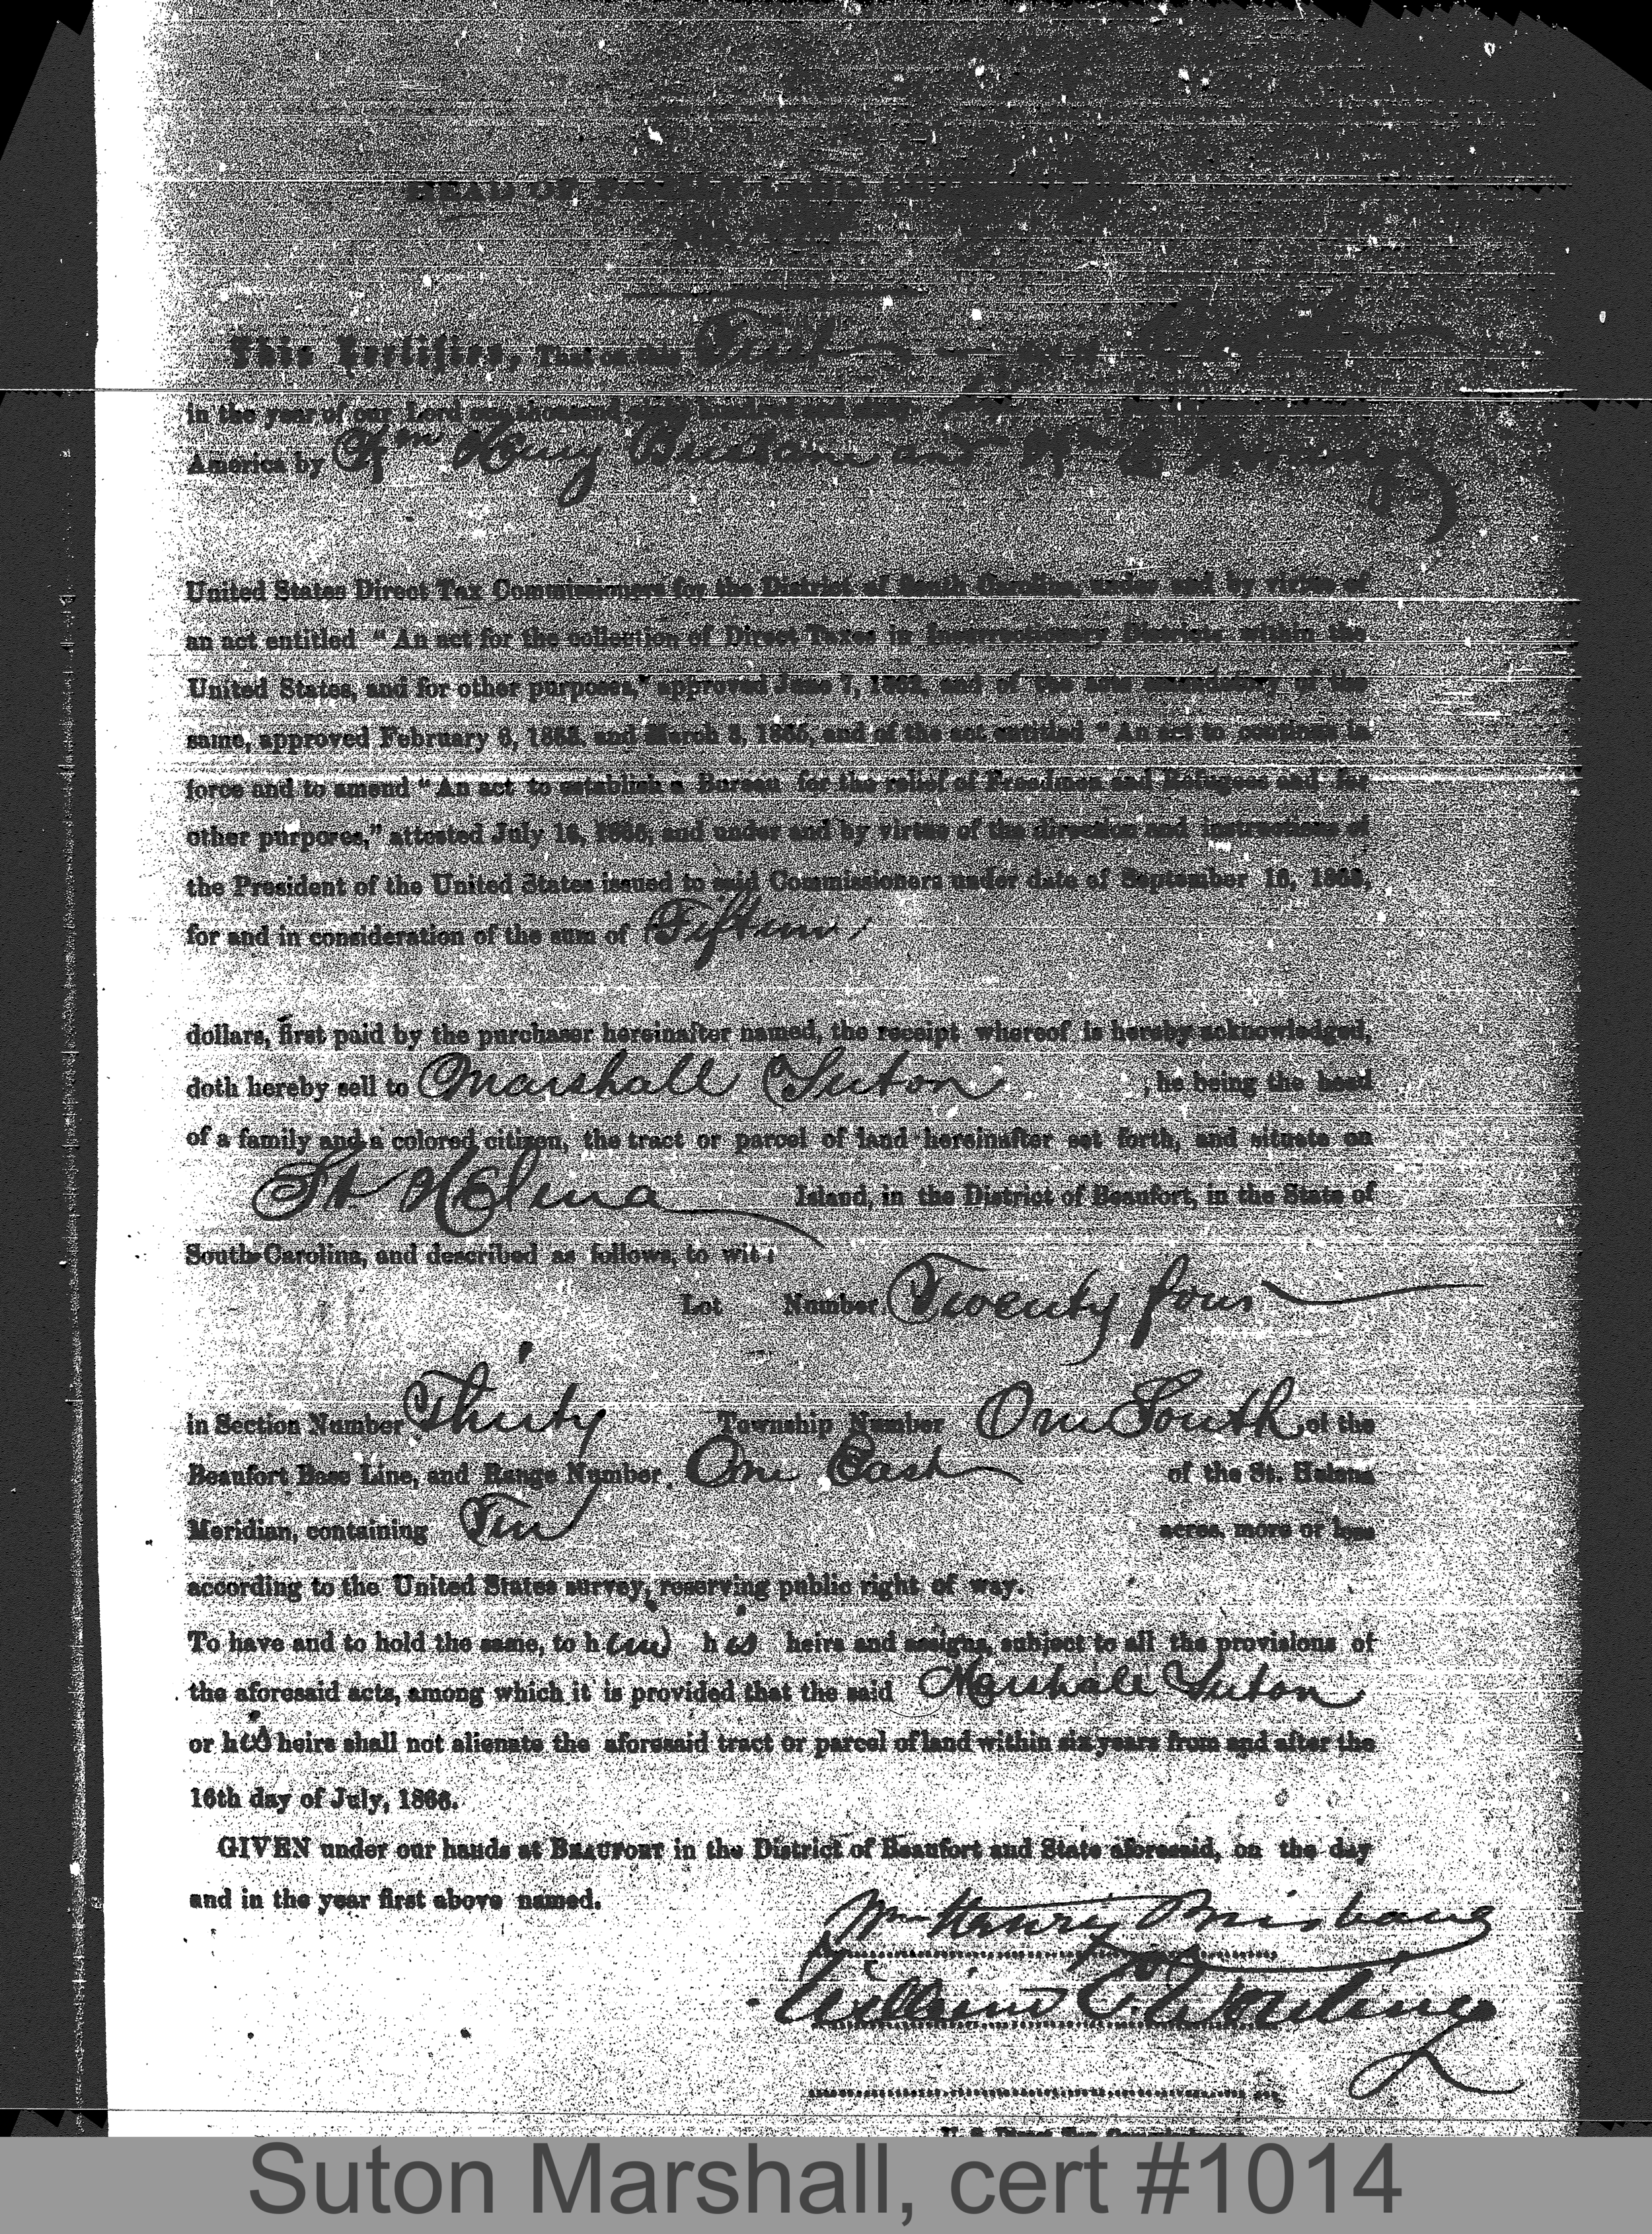 HEAD OF FAMILY LAND
This Certifies, That on this First day of
in the year of our Lord one thousand eight hundred and sixty
America by Wm Henry Brisbane and Wm E Wording
United States Direct Tax Commissioners for the District of South Carolina, under and by virtue of
an act entitled "An act for the collection of Direct Taxes in Insurrectionary Districts within the
United States, and for other purposes," approved June 7, 1862, and of the acts amendatory of the
same, approved February 6, 1863, and March 3, 1865, and of the act entitled "An act to continue in
force and to amend "An act to establish a Bureau for the relief of Freedmen and Refugees and for
other purpores," attested July 16, 1866, and under and by virtue of the direction and instructions of
the President of the United States issued to said Commissioners under date of September 16, 1863,
for and in consideration of the sum of Fifteen
dollars, first paid by the purchaser hereinafter named, the receipt whereof is hereby acknowledged,
doth hereby sell to Marshall Suton , he being the head
of a family and a colored citizen, the tract or parcel of land hereinafter set forth, and situate on
St Helena Island, in the District of Beaufort, in the State of
South-Carolina, and described as follows, to wit:
Lot Number Twenty four
in Section Number Thirty Township Number One South of the
Beaufort Base Line, and Range Number One East of the St. Helena
Meridian, containing Ten acres, more or less
according to the United States survey, reserving public right of way.
To have and to hold the same, to him his heirs and assigns, subject to all the provisions of
the aforesaid acts, among which it is provided that the said Marshall Suton
or his heirs shall not alienate the aforesaid tract or parcel of land within six years from and after the
16th day of July, 1866.
GIVEN under our hands at BEAUFORT in the District of Beaufort and State aforesaid, on the day
and in the year first above named.
Wm Henry Brisbane
William E. Wording
Suton Marshall, cert #1014